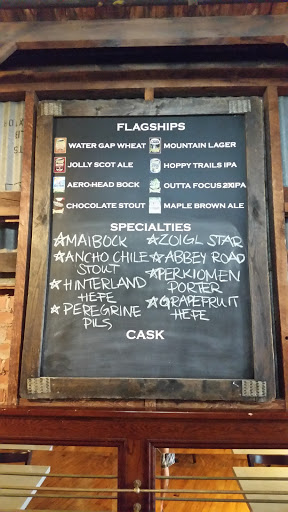 FLAGSHIPS
WATER GAP WHEAT
MOUNTAIN LAGER
JOLLY SCOT ALE
HOPPY TRAILS IPA
AERO-HEAD BOCK
OUTTA FOCUS 2XIPA
CHOCOLATE STOUT
MAPLE BROWN ALE
SPECIALTIES
MAIBOCK
ANCHO CHILE
STOUT
HINTERLAND
HEFE
PEREGRINE
PILS
ZOIGL STAR
ABBEY ROAD
PERKIOMEN
PORTER
GRAPEFRUIT
HEFE
CASK